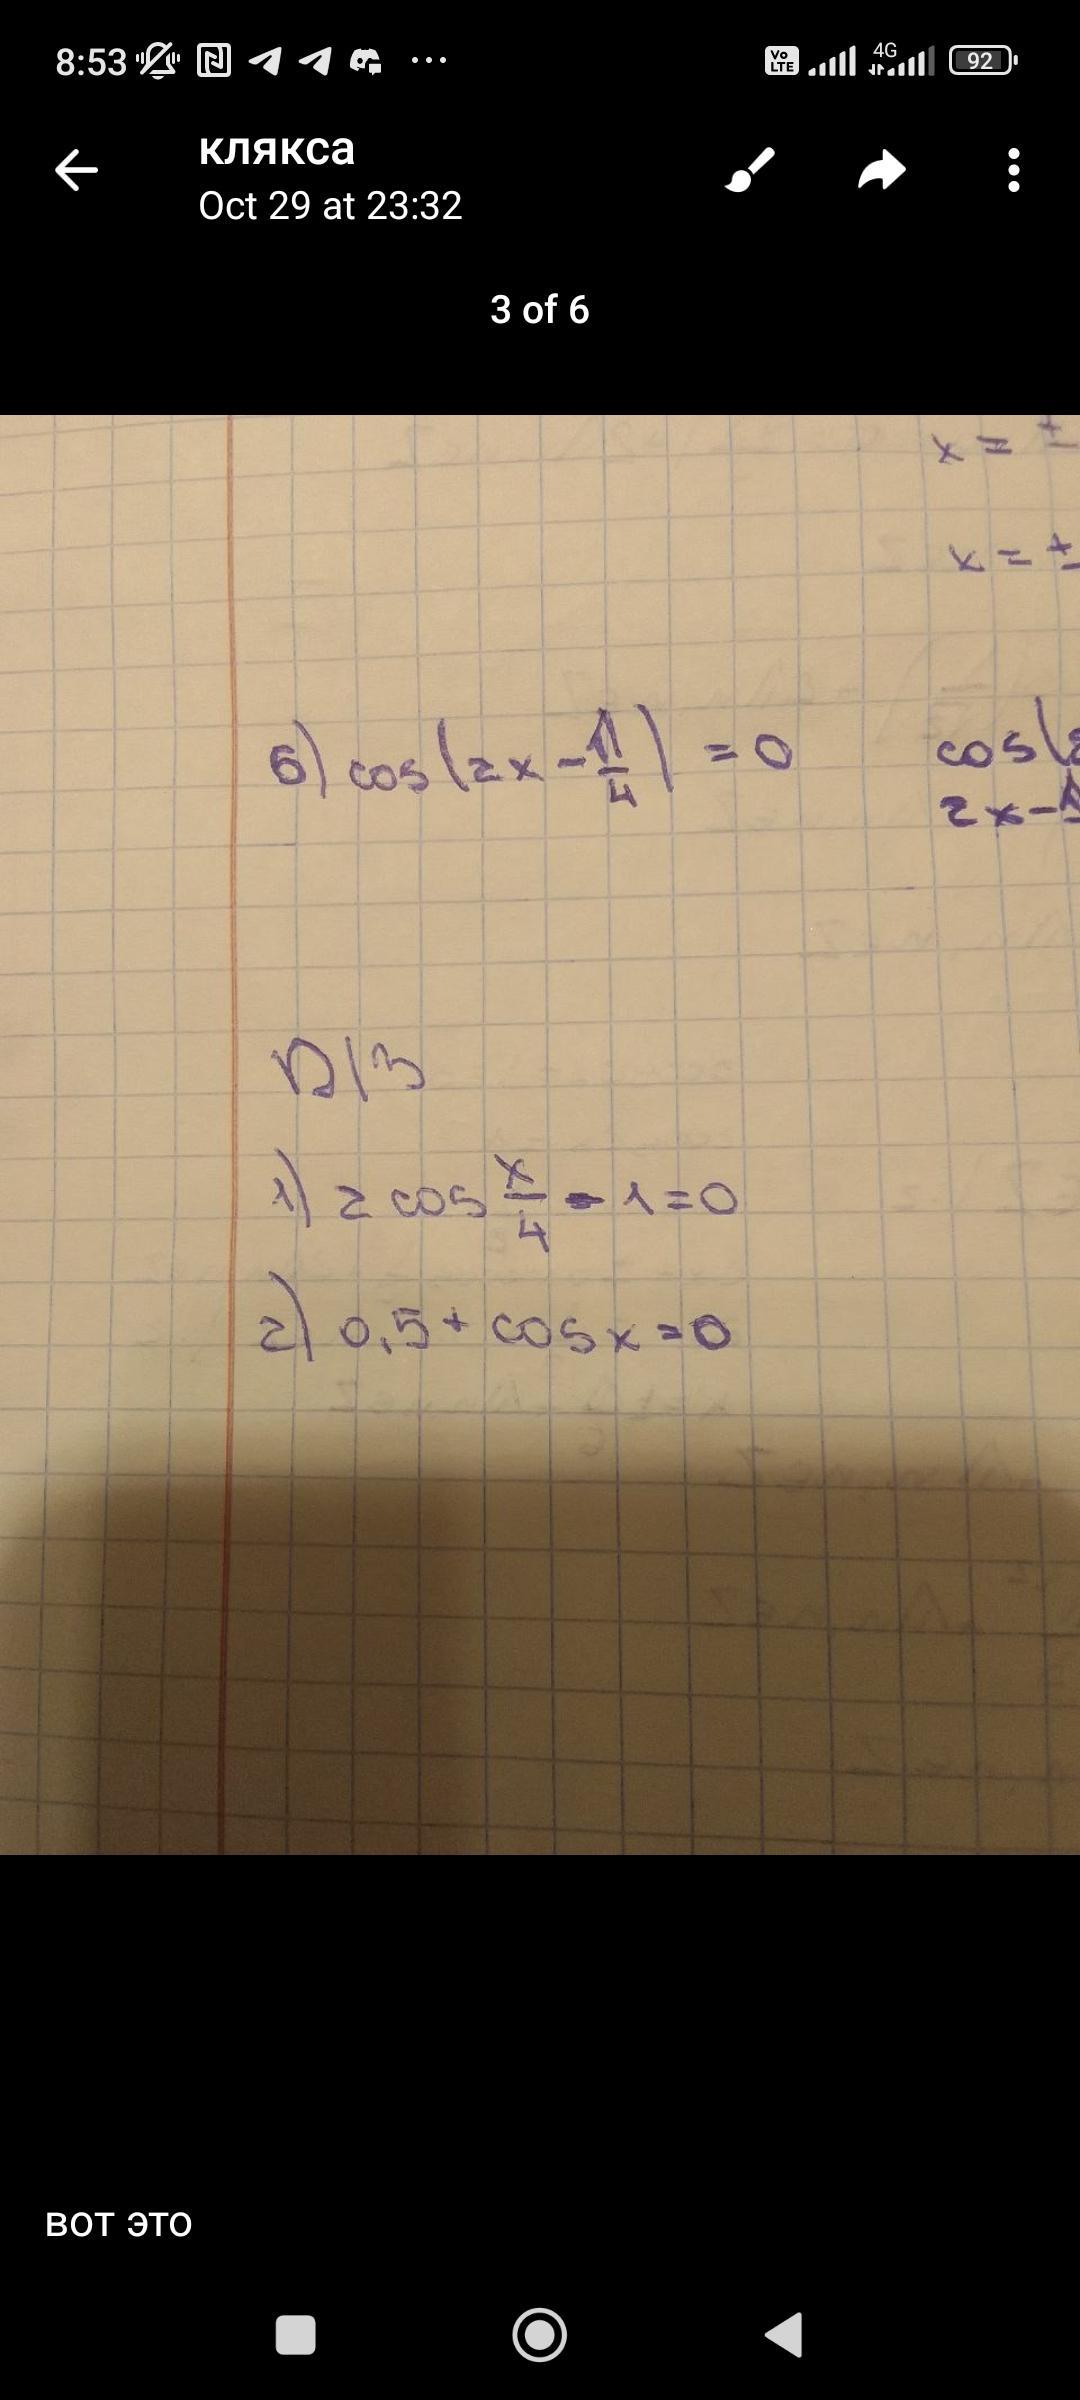 8:53 Vo LTE 4G 92
клякса
Oct 29 at 23:32
3 of 6
x = ±
x = ±
6) cos(2x - π/4) = 0
cos(2
2x - π
D/З
1) 2 cos x/4 - 1 = 0
2) 0,5 + cos x = 0
вот это